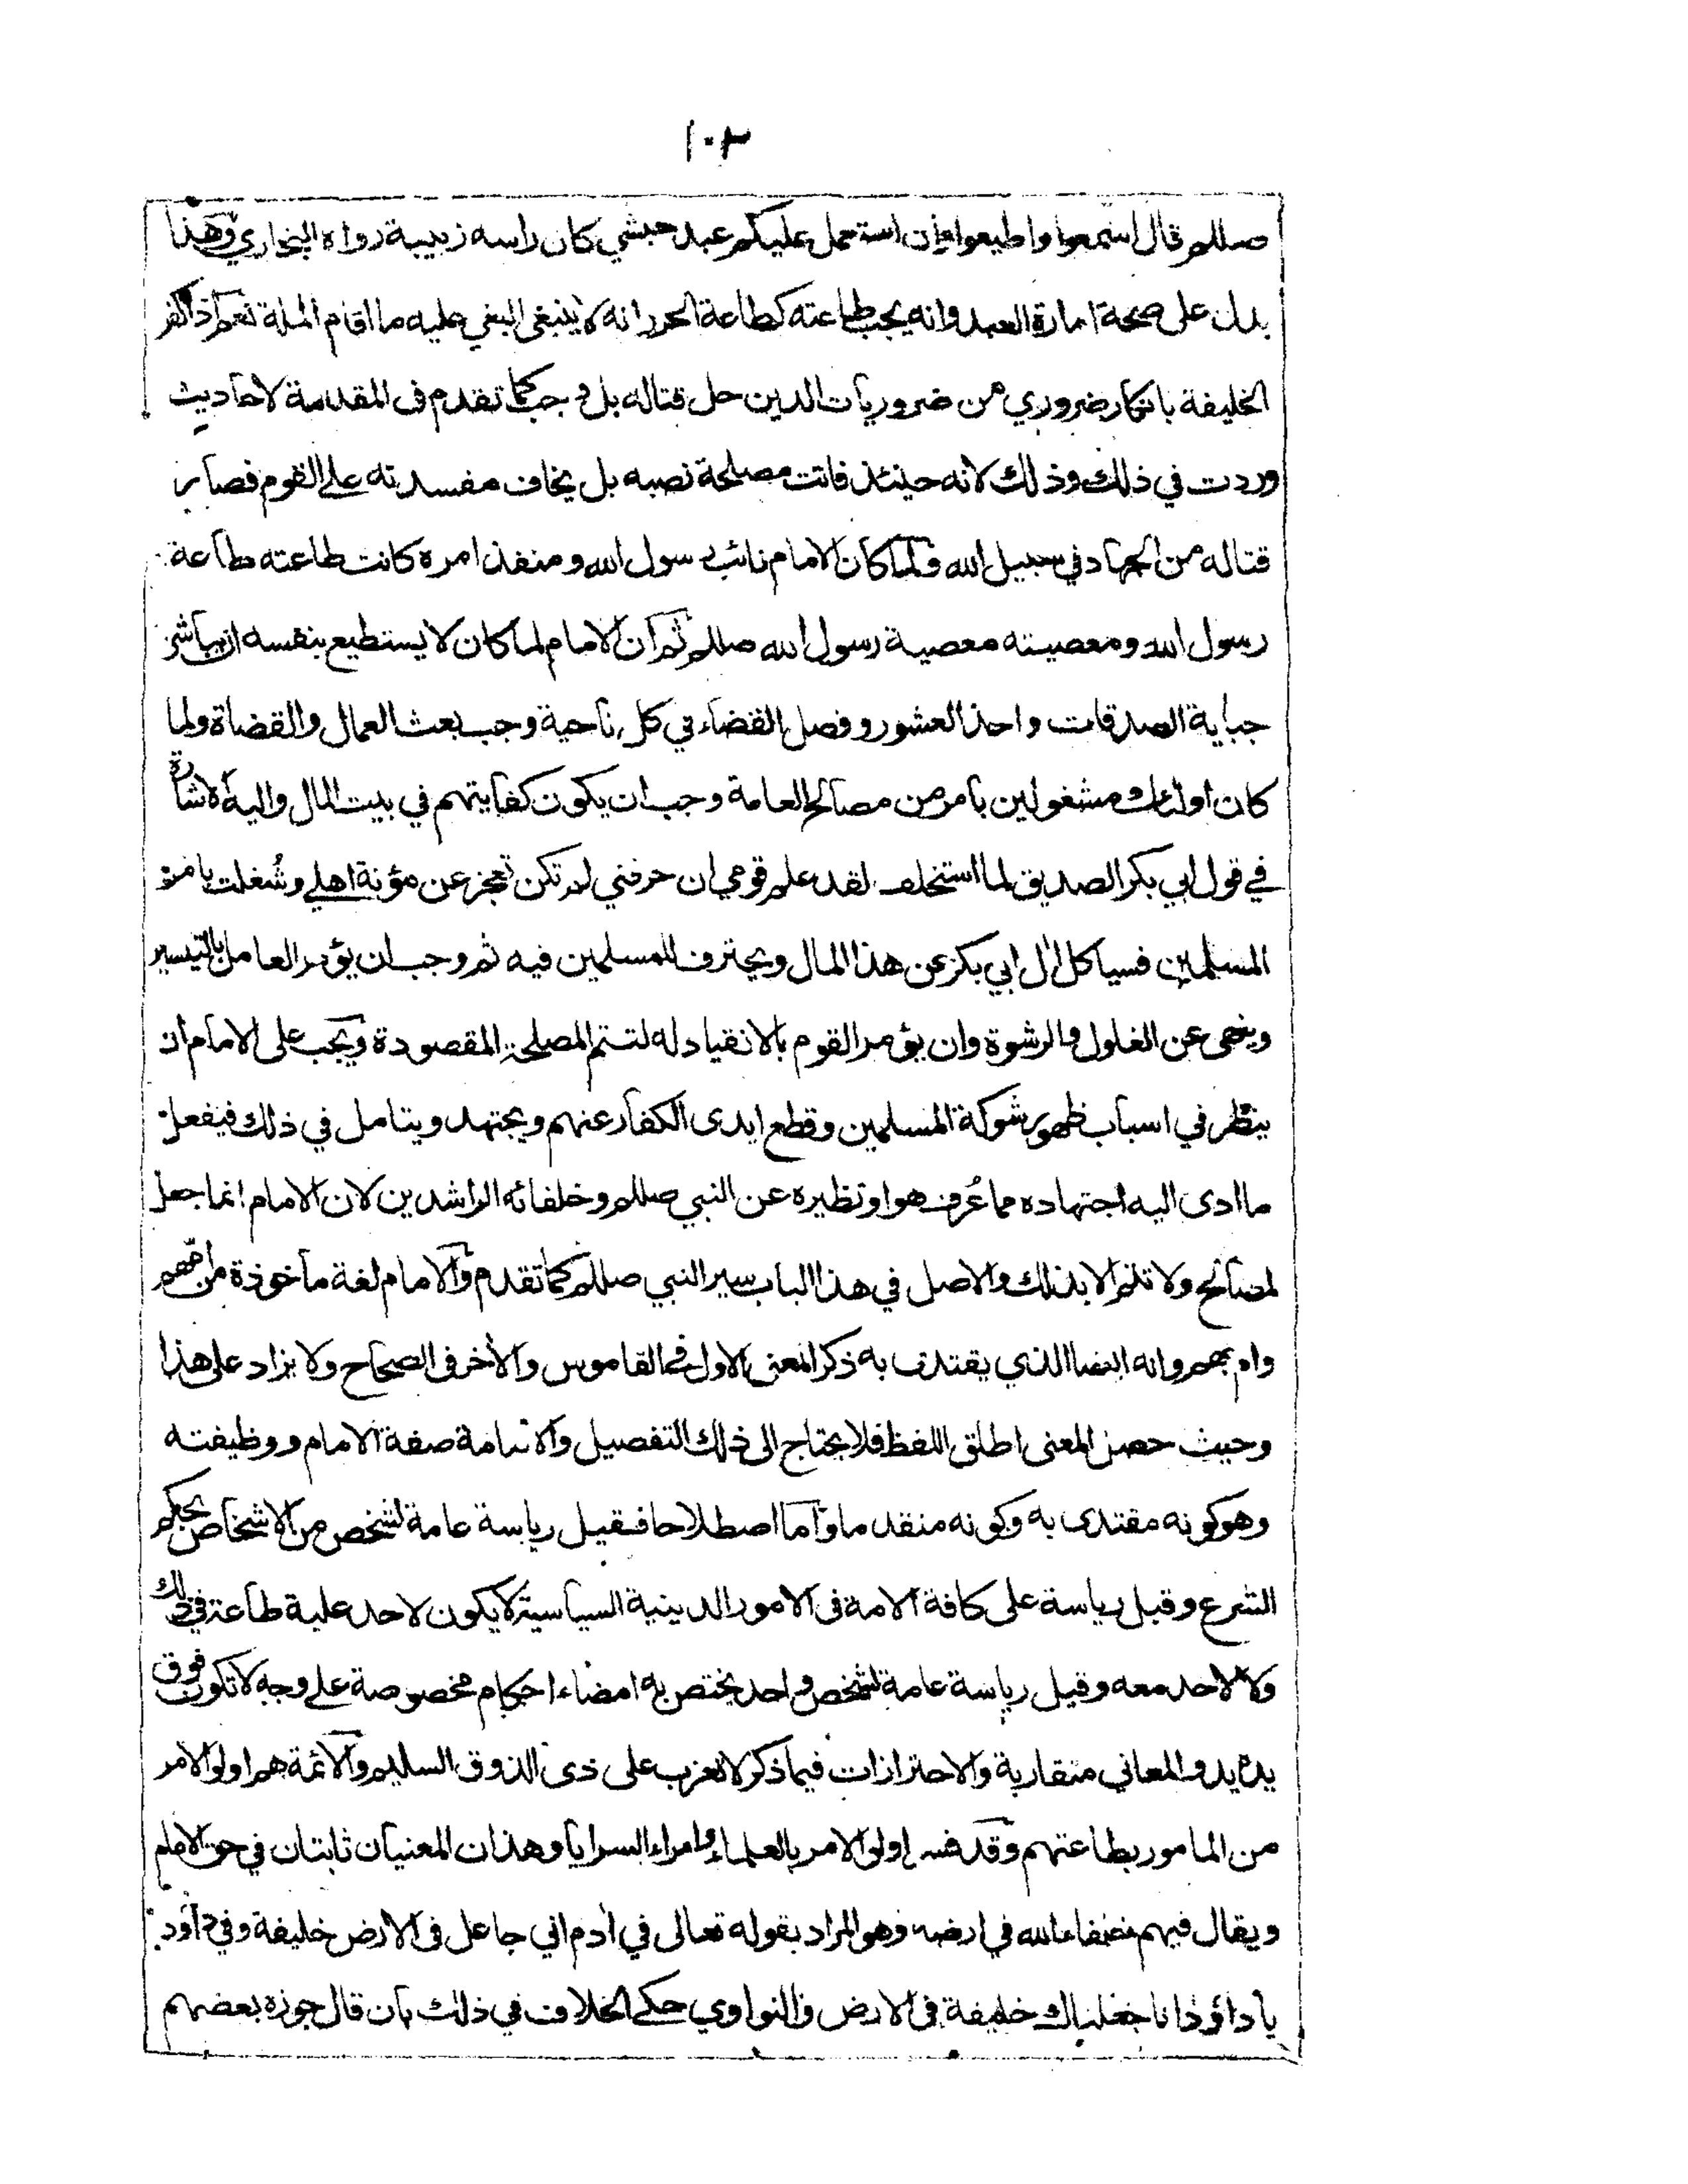 ١٠٢
صللم قال اسمعوا واطيعوا وان استعمل عليكم عبد حبشي كان راسه زبيبة رواه البخاري وهذا
يدل على صحة امارة العبد وانه يجب طاعته كطاعة الحر وانه لا ينبغي البغي عليه ما اقام الملة نعم اذا كفر
الخليفة بانكار ضروري من ضروريات الدين حل قتاله بل وجب كما تقدم فى المقدمة لاحاديث
وردت في ذلك وذلك لانه حينئذ فاتت مصلحة نصبه بل يخاف مفسدته على القوم فصار
قتاله من الجهاد في سبيل الله ولما كان الامام نائب رسول الله ومنفذ امره كانت طاعته طاعة
رسول الله ومعصيته معصية رسول الله صللم ثم ان الامام لما كان لا يستطيع بنفسه ان يباشر
جباية الصدقات واخذ العشور وفصل القضاء في كل ناحية وجب بعث العمال والقضاة ولما
كان اولئك مشغولين بامر من مصالح العامة وجب ان يكون كفايتهم في بيت المال واليه الاشارة
في قول ابي بكر الصديق لما استخلف لقد علم قومي ان حرفتي لم تكن تعجز عن مؤنة اهلي وشُغلت بامر
المسلمين فسياكل ال ابي بكر من هذا المال ويحترف للمسلمين فيه ثم وجب ان يؤمر العامل بالتيسير
وينهى عن الغلول والرشوة وان يؤمر القوم بالانقياد له لتتم المصلحة المقصودة ويجب على الامام ان
ينظر في اسباب ظهور شوكة المسلمين وقطع ايدى الكفار عنهم ويجتهد ويتامل في ذلك فيفعل
ما ادى اليه اجتهاده مما عُرف هو او نظيره عن النبي صللم وخلفائه الراشدين لان الامام انما جعل
لمصالح ولا تتم الا بذلك والاصل في هذا الباب سير النبي صللم كما تقدم والامام لغة ماخوذة من امّهم
وام بهم وانه ايضا الذي يقتدى به ذكر المعنى الاول فى القاموس والاخر فى الصحاح ولا يزاد على هذا
وحيث حصل المعنى اطلق اللفظ فلا يحتاج الى ذلك التفصيل والامامة صفة الامام ووظيفته
وهو كونه مقتدى به وكونه متقدما واما اصطلاحا فقيل رياسة عامة لشخص من الاشخاص بحكم
الشرع وقيل رياسة على كافة الامة فى الامور الدينية السياسية لا يكون لاحد عليه طاعة في ذلك
ولا لاحد معه وقيل رياسة عامة لشخص واحد يختص به امضاء احكام مخصوصة على وجه لا تكون فوق
يده يد والمعاني متقاربة والاحترازات فيما ذكر لا تعزب على ذى الذوق السليم والائمة هم اولو الامر
من المامور بطاعتهم وقد فسر اولو الامر بالعلماء وامراء السرايا وهذان المعنيان ثابتان في حق الامام
ويقال فيهم خلفاء الله في ارضه وهو المراد بقوله تعالى في ادم اني جاعل فى الارض خليفة وفي داود
يا داؤد انا جعلناك خليفة فى الارض والنواوي حكى الخلاف في ذلك بان قال جوزه بعضهم